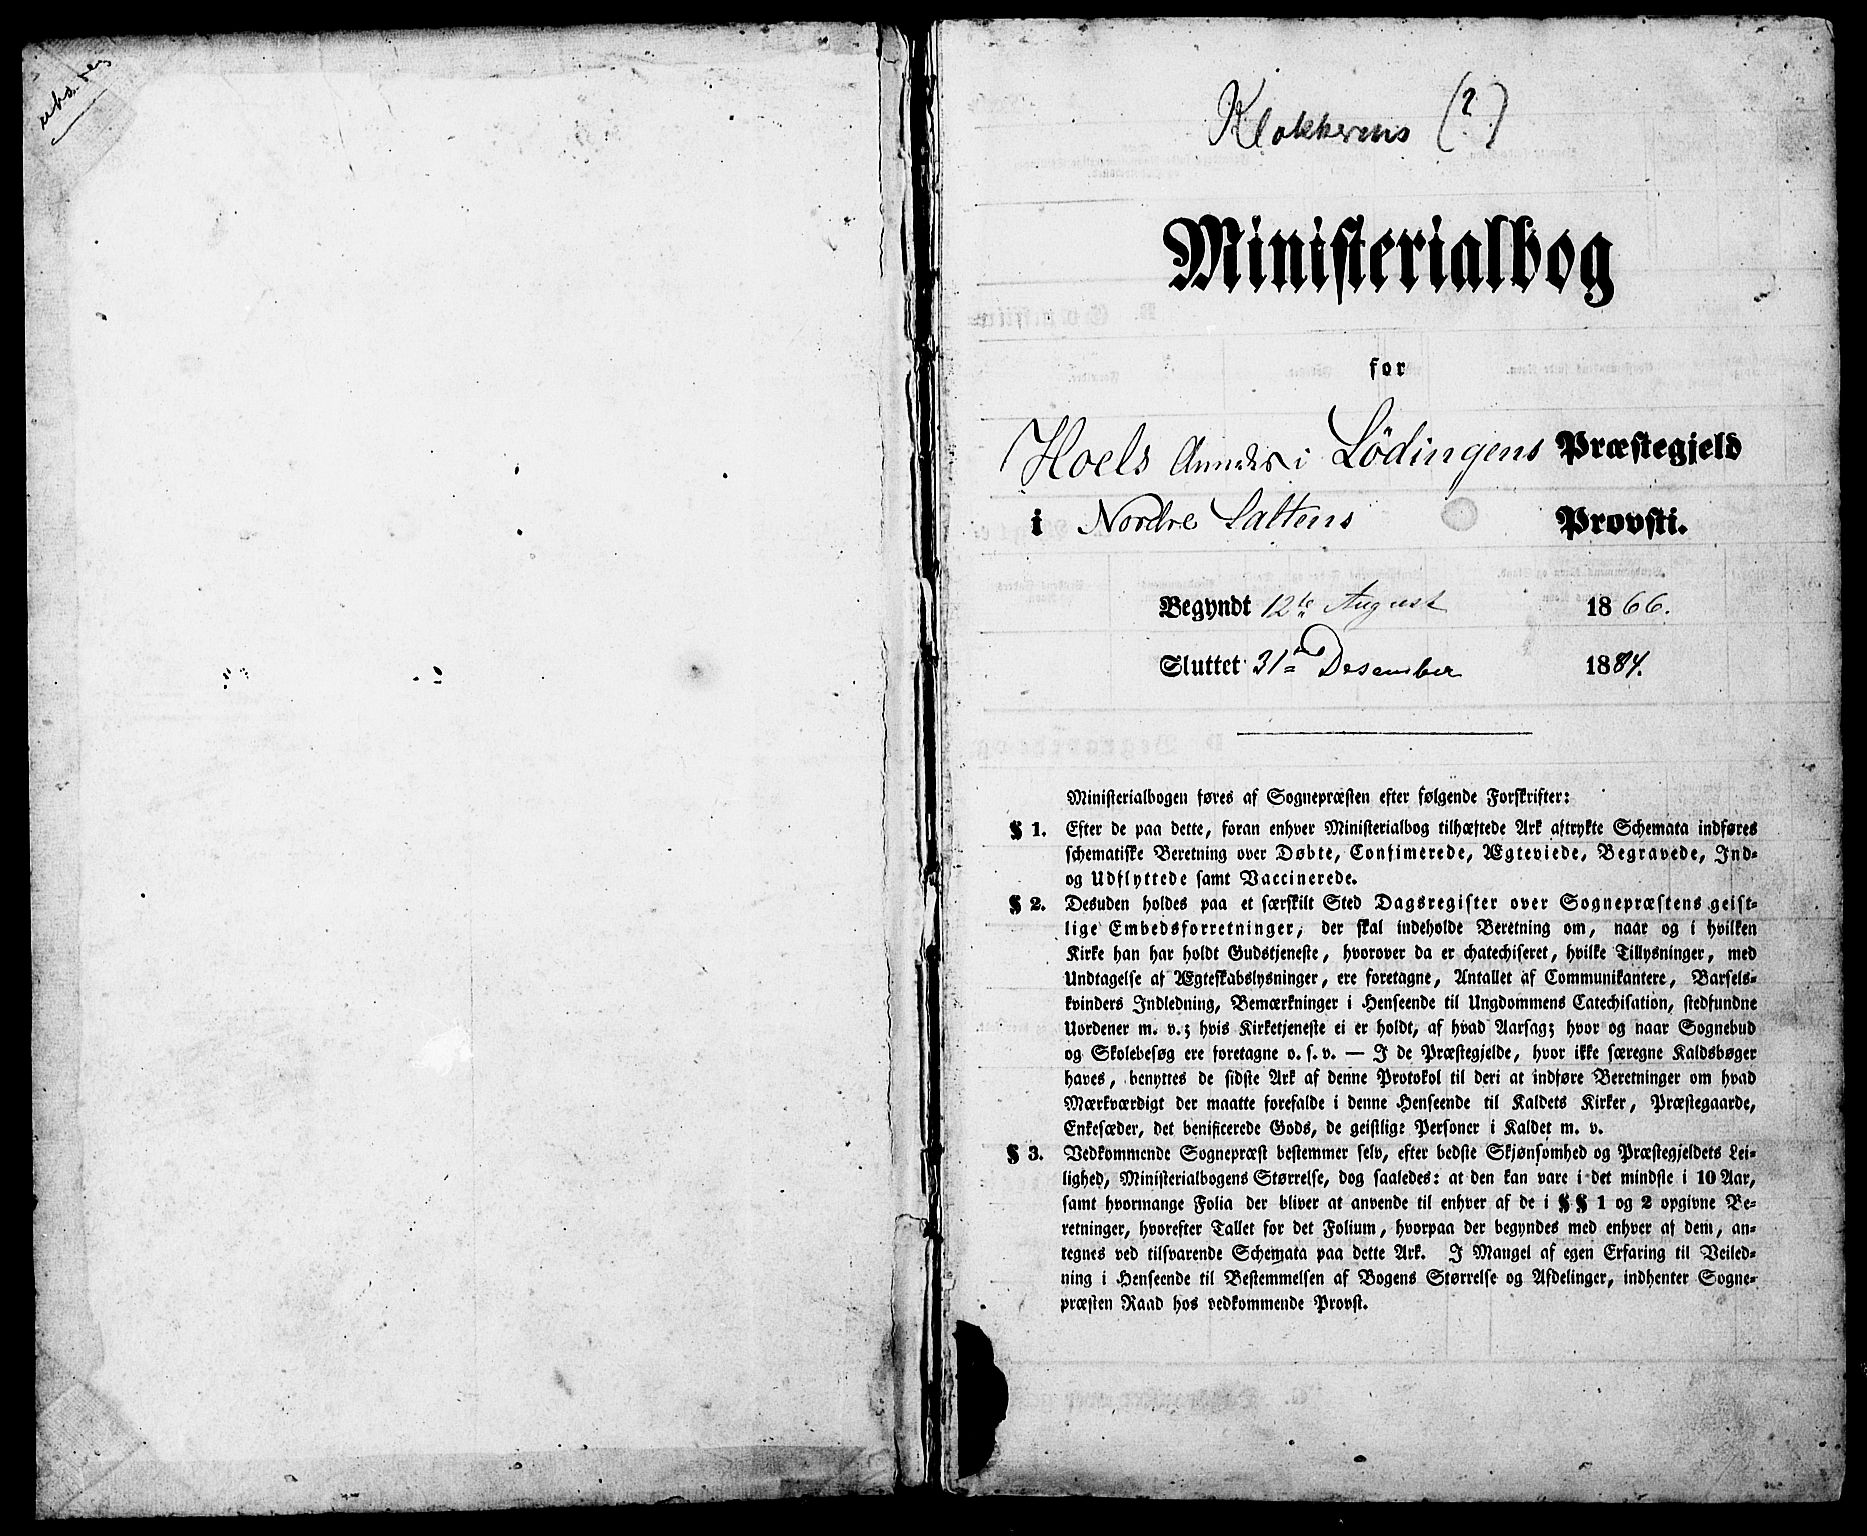 Klokkerens (?)
Ministerialbog
for
Hoels Annex i Lödingens Præstegjeld
i Nordre Saltens Provsti.
Begyndt 12te August 1866.
Sluttet 31te Desember 1884.
Ministerialbogen føres af Sognepræsten efter følgende Forskrifter:
§ 1. Efter de paa dette, foran enhver Ministerialbog tilhæftede Ark aftrykte Schemata indføres
schematiske Beretning over Døbte, Confimerede, Ægteviede, Begravede, Ind-
og Udflyttede samt Vaccinerede.
§ 2. Desuden holdes paa et særskilt Sted Dagsregister over Sognepræstens geist-
lige Embedsforretninger, der skal indeholde Beretning om, naar og i hvilken
Kirke han har holdt Gudstjeneste, hvorover da er chatechiseret, hvilke Tillysninger, med
Undtagelse af Ægteskabslysninger, ere foretagne, Antallet af Communikantere, Barsels-
kvinders Indledning, Bemærkninger i Henseende til Ungdommens Catechisation, stedfundne
Uordener m. v.; hvis Kirketjeneste ei er holdt, af hvad Aarsag; hvor og naar Sognebud
og Skolebesøg ere foretagne o. s. v. — I de Præstegjelde, hvor ikke særegne Kaldsbøger
haves, benyttes de sidste Ark af denne Protokol til deri at indføre Beretninger om hvad
Mærkværdigt der maatte forefalde i denne Henseende til Kaldets Kirker, Præstegaarde,
Enkesæder, det benificerede Gods, de geistlige Personer i Kaldet m. v.
§ 3. Vedkommende Sognepræst bestemmer selv, efter bedste Skjønsomhed og Præstegjeldets Lei-
lighed, Ministerialbogens Størrelse, dog saaledes: at den kan vare i det mindste i 10 Aar,
samt hvormange Folia der bliver at anvende til enhver af de i §§ 1 og 2 opgivne Be-
retninger, hvorefter Tallet for det Folium, hvorpaa der begyndes med enhver af dem, an-
tegnes ved tilsvarende Schemata paa dette Ark. I Mangel af egen Erfaring til Veiled-
ning i Henseende til Bestemmelsen af Bogens Størrelse og Afdelinger, indhenter Sogne-
præsten Raad hos vedkommende Provst.